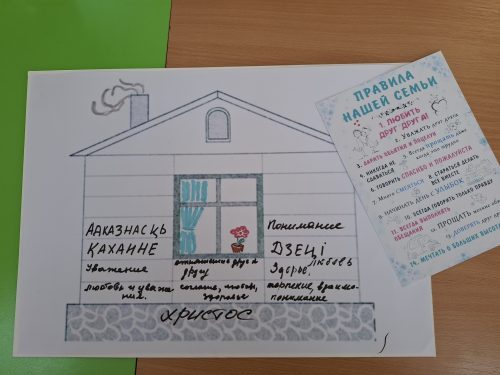 ААКАЗНАСЦЬ
КАХАННЕ
Уважение
любовь и уваже
ние.
друг к
другу
согласие, любовь,
здоровье
Понимание
ДЗЕЦІ
любовь
Здоровье,
терпение, взаимо-
понимание
ХРИСТОС
ПРАВИЛА
НАШЕЙ СЕМЬИ
1. ЛЮБИТЬ
ДРУГ ДРУГА!
2. УВАЖАТЬ друг друга
3. ДАРИТЬ ОБЪЯТИЯ И ПОЦЕЛУИ
4. НИКОГДА НЕ
СДАВАТЬСЯ
5. Всегда прощать даже
когда это трудно
6. ГОВОРИТЬ СПАСИБО И ПОЖАЛУЙСТА
7. Много СМЕЯТЬСЯ
8. СТАРАТЬСЯ ДЕЛАТЬ
ВСЕ ВМЕСТЕ
9. НАЧИНАТЬ ДЕНЬ С УЛЫБОК
10. ВСЕГДА ГОВОРИТЬ ТОЛЬКО ПРАВДУ
11. ВСЕГДА ВЫПОЛНЯТЬ
ОБЕЩАНИЯ
ПРОЩАТЬ
13. ДОВЕРЯТЬ друг
14. МЕЧТАТЬ О БОЛЬШИХ ВЫСОТАХ